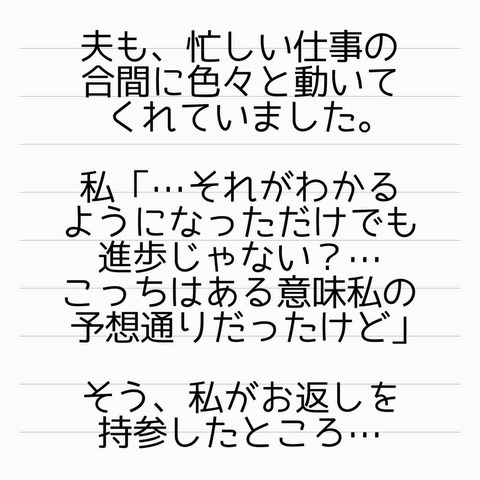 夫も、忙しい仕事の
合間に色々と動いて
くれていました。
私「…それがわかる
ようになっただけでも
進歩じゃない？…
こっちはある意味私の
予想通りだったけど」
そう、私がお返しを
持参したところ…